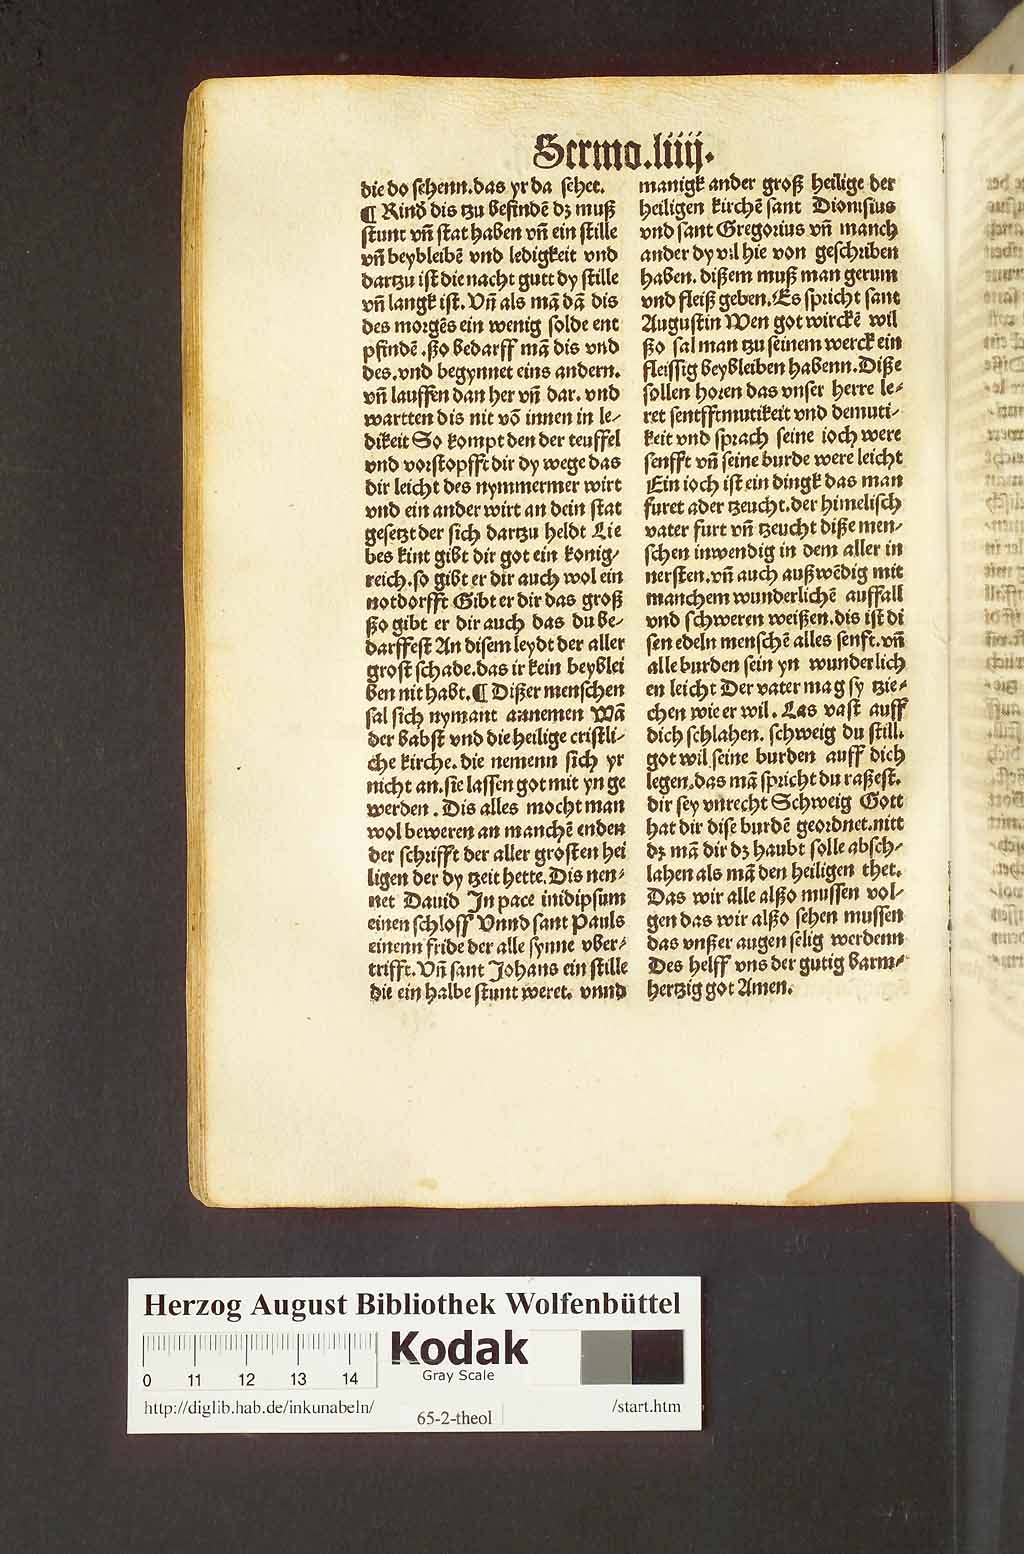 Sermo.liiij.
die do sehenn.das yr da sehet.
¶ Kinð dis tzu befindẽ dz muß
stunt vñ stat haben vñ ein stille
vñ beybleibẽ vnd ledigkeit vnd
dartzu ist die nacht gutt dy stille
vñ langk ist. Vñ als mã dã dis
des morgẽs ein wenig solde ent
pfindẽ .ßo bedarff mã dis vnd
des.vnd begynnet eins andern.
vñ lauffen dan her vñ dar. vnd
wartten dis nit võ innen in le⸗
dikeit So kompt den der teuffel
vnd vorstopfft dir dy wege das
dir leicht des nymmermer wirt
vnd ein ander wirt an dein stat
gesetzt der sich dartzu heldt Lie
bes kint gibt dir got ein konig⸗
reich.so gibt er dir auch wol ein
notdorfft Gibt er dir das groß
ßo gibt er dir auch das du be⸗
darffest An disem leydt der aller
grost schade.das ir kein beyblei
ben nit habt.¶ Dißer menschen
sal sich nymant annemen Wã
der babst vnd die heilige cristli⸗
che kirche. die nemenn sich yr
nicht an.sie lassen got mit yn ge
werden . Dis alles mocht man
wol beweren an manchẽ enden
der schrifft der aller grosten hei
ligen der dy tzeit hette. Dis nen⸗
net Dauid In pace inidipsum
einen schloff Vnnd sant Pauls
einenn fride der alle synne vber⸗
trifft. Vñ sant Johans ein stille
die ein halbe stunt weret. vnnd
manigk ander groß heilige der
heiligen kirchẽ sant Dionisius
vnd sant Gregorius vñ manch
ander dy vil hie von geschriben
haben. dißem muß man gerum
vnd fleiß geben. Es spricht sant
Augustin Wen got wirckẽ wil
ßo sal man tzu seinem werck ein
fleissig beybleiben habenn. Diße
sollen horen das vnser herre le⸗
ret senfftmutikeit vnd demuti⸗
keit vnd sprach seine ioch were
senfft vñ seine burde were leicht
Ein ioch ist ein dingk das man
furet ader tzeucht.der himelisch
vater furt vñ tzeucht diße men⸗
schen inwendig in dem aller in
nersten.vñ auch außwẽdig mit
manchem wunderlichẽ auffall
vnd schweren weißen. dis ist di
sen edeln menschẽ alles senft.vñ
alle burden sein yn wunderlich
en leicht Der vater mag sy tzie⸗
chen wie er wil. Las vast auff
dich schlahen. schweig du still.
got wil seine burden auff dich
legen.das mã spricht du raßest.
dir sey vnrecht Schweig Gott
hat dir dise burdẽ geordnet.nitt
dz mã dir dz haubt solle absch⸗
lahen als mã den heiligen thet.
Das wir alle alßo mussen vol⸗
gen das wir alßo sehen mussen
das vnßer augen selig werdenn
Des helff vns der gutig barm⸗
hertzig got Amen.
Herzog August Bibliothek Wolfenbüttel
Kodak
Gray Scale
0 11 12 13 14
http://diglib.hab.de/inkunabeln/
65-2-theol
/start.htm